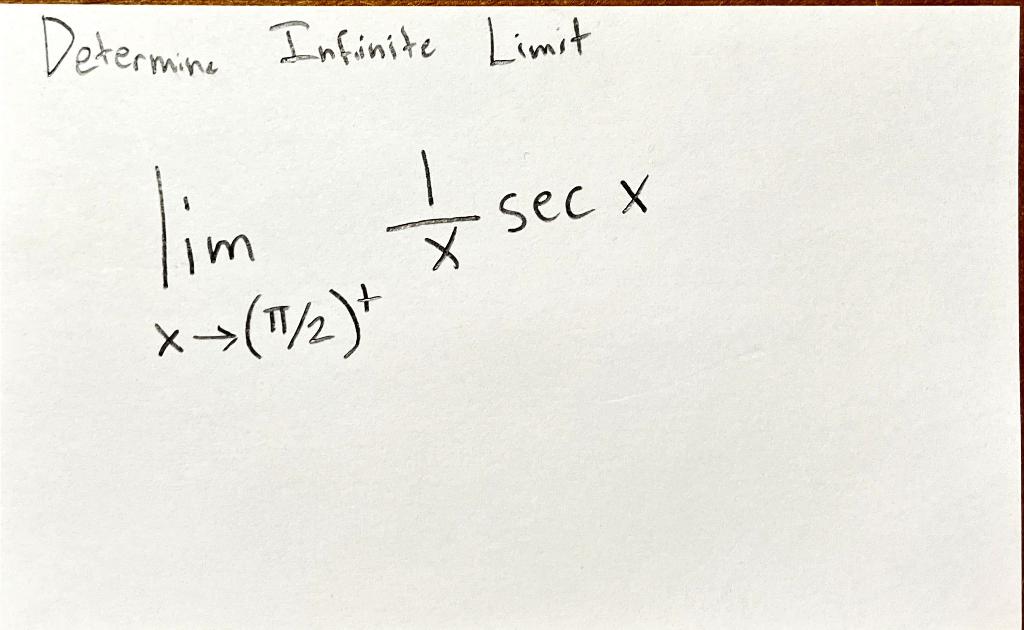 Determine Infinite Limit
lim 1/x sec x
x→(π/2)⁺